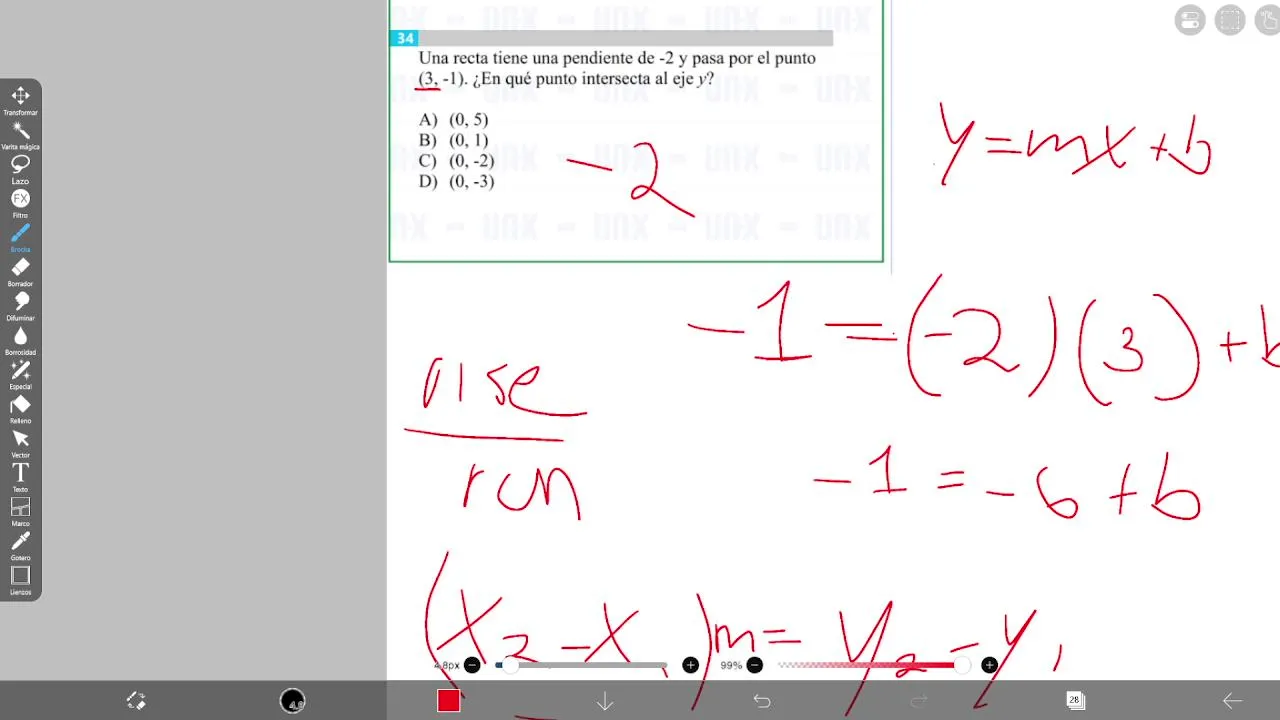 34
Una recta tiene una pendiente de -2 y pasa por el punto
(3, -1). ¿En qué punto intersecta al eje y?
A) (0, 5)
B) (0, 1)
C) (0, -2)
D) (0, -3)
-2
y=mx+b
-1=(-2)(3)+b
-1=-6+b
rise
run
(x2-x1)m=y2-y1
Transformar
Varita mágica
Lazo
FX
Filtro
Brocha
Borrador
Difuminar
Borrosidad
Especial
Relleno
Vector
T
Texto
Marco
Gotero
Lienzos
4.8px
99%
4.8
28